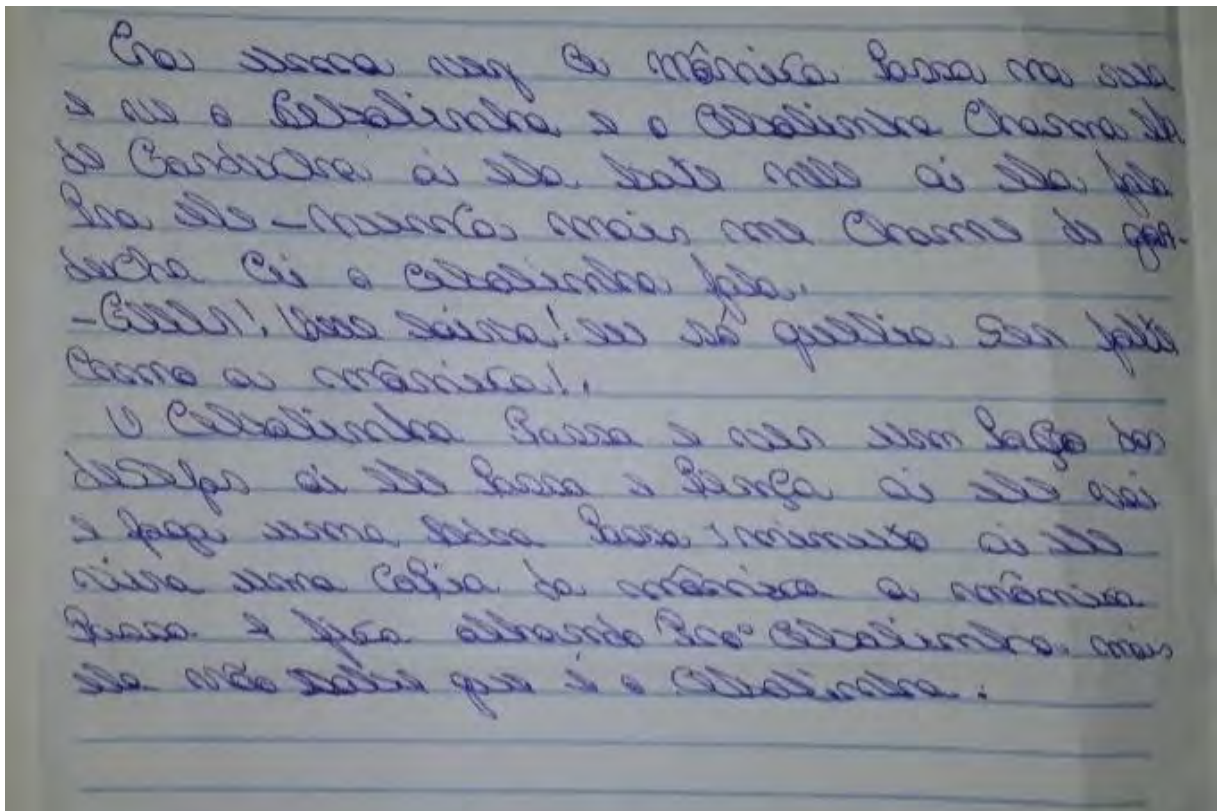 Era uma vez a mônica Passa na rua
e ve o Cebolinha e o Cebolinha Chama ela
de Gorducha ai ela bate nele ai ela fala
Pra ele - nunca mais me Chame de gor-
ducha ai o cebolinha fala.
- essa baixa! eu só quelia ser
como a mônica!.
O Cebolinha Passa e ver um Poço dos
ai ele Passa e ai ele vai
e faz uma Passa 1 minuto ai ele
vira uma Copia da mônica a mônica
Passa e fica olhando Pro Cebolinha mais
ela não sabe que é o Cebolinha.